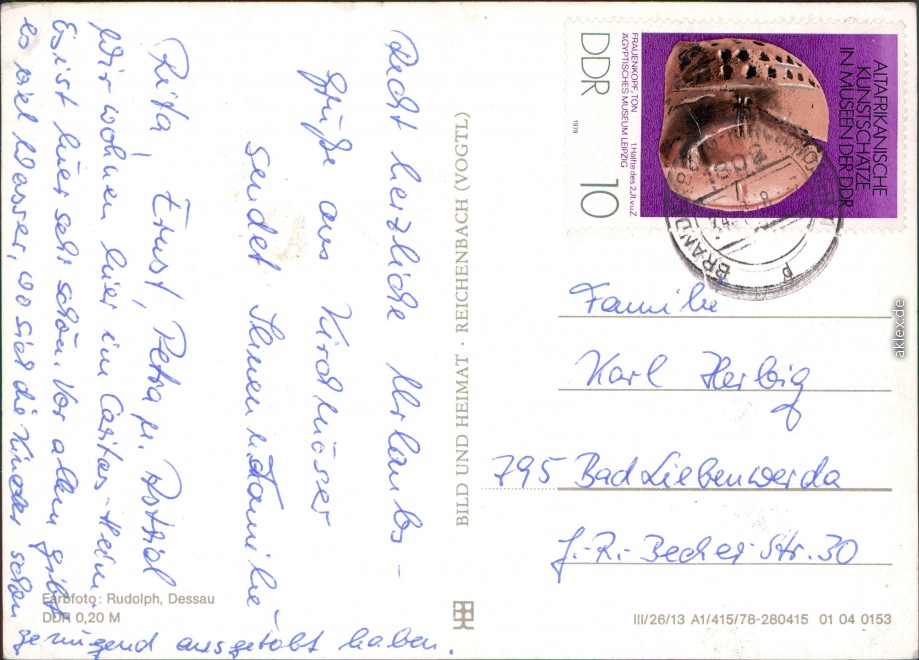 Recht herzliche Urlaubs-
grüße aus Kirchmöser
sendet Ihnen u. Familie
Rita, Ernst, Petra u. Astrid
Wir wohnen hier im Caritas-Heim.
Es ist hier sehr schön. Vor allem gibt
es viel Wasser, wo sich die Kinder schon
genügend ausgetobt haben.
Farbfoto: Rudolph, Dessau
DDR 0,20 M
BILD UND HEIMAT · REICHENBACH (VOGTL)
ALTAFRIKANISCHE
KUNSTSCHÄTZE
IN MUSEEN DER DDR
FRAUENKOPF, TON 1. Hälfte des 2. Jt. v. u. Z.
ÄGYPTISCHES MUSEUM LEIPZIG
DDR 10
1978
1802
BRAND
Familie
Karl Herbig
795 Bad Liebenwerda
J.-R.-Becher-Str. 30
III/26/13 A1/415/78-280415 01 04 0153
aklex.de